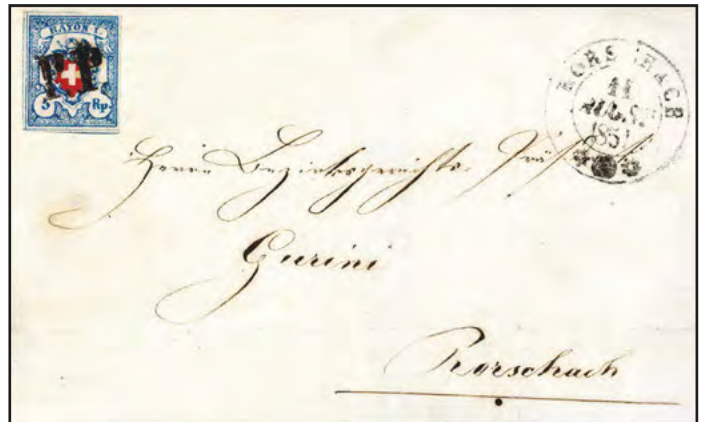 RAYON I.
PP
5 Rp.
RORSCHACH
11
AUG.
1851
Herrn Bezirksgerichts-Präsident
Gurini
Rorschach